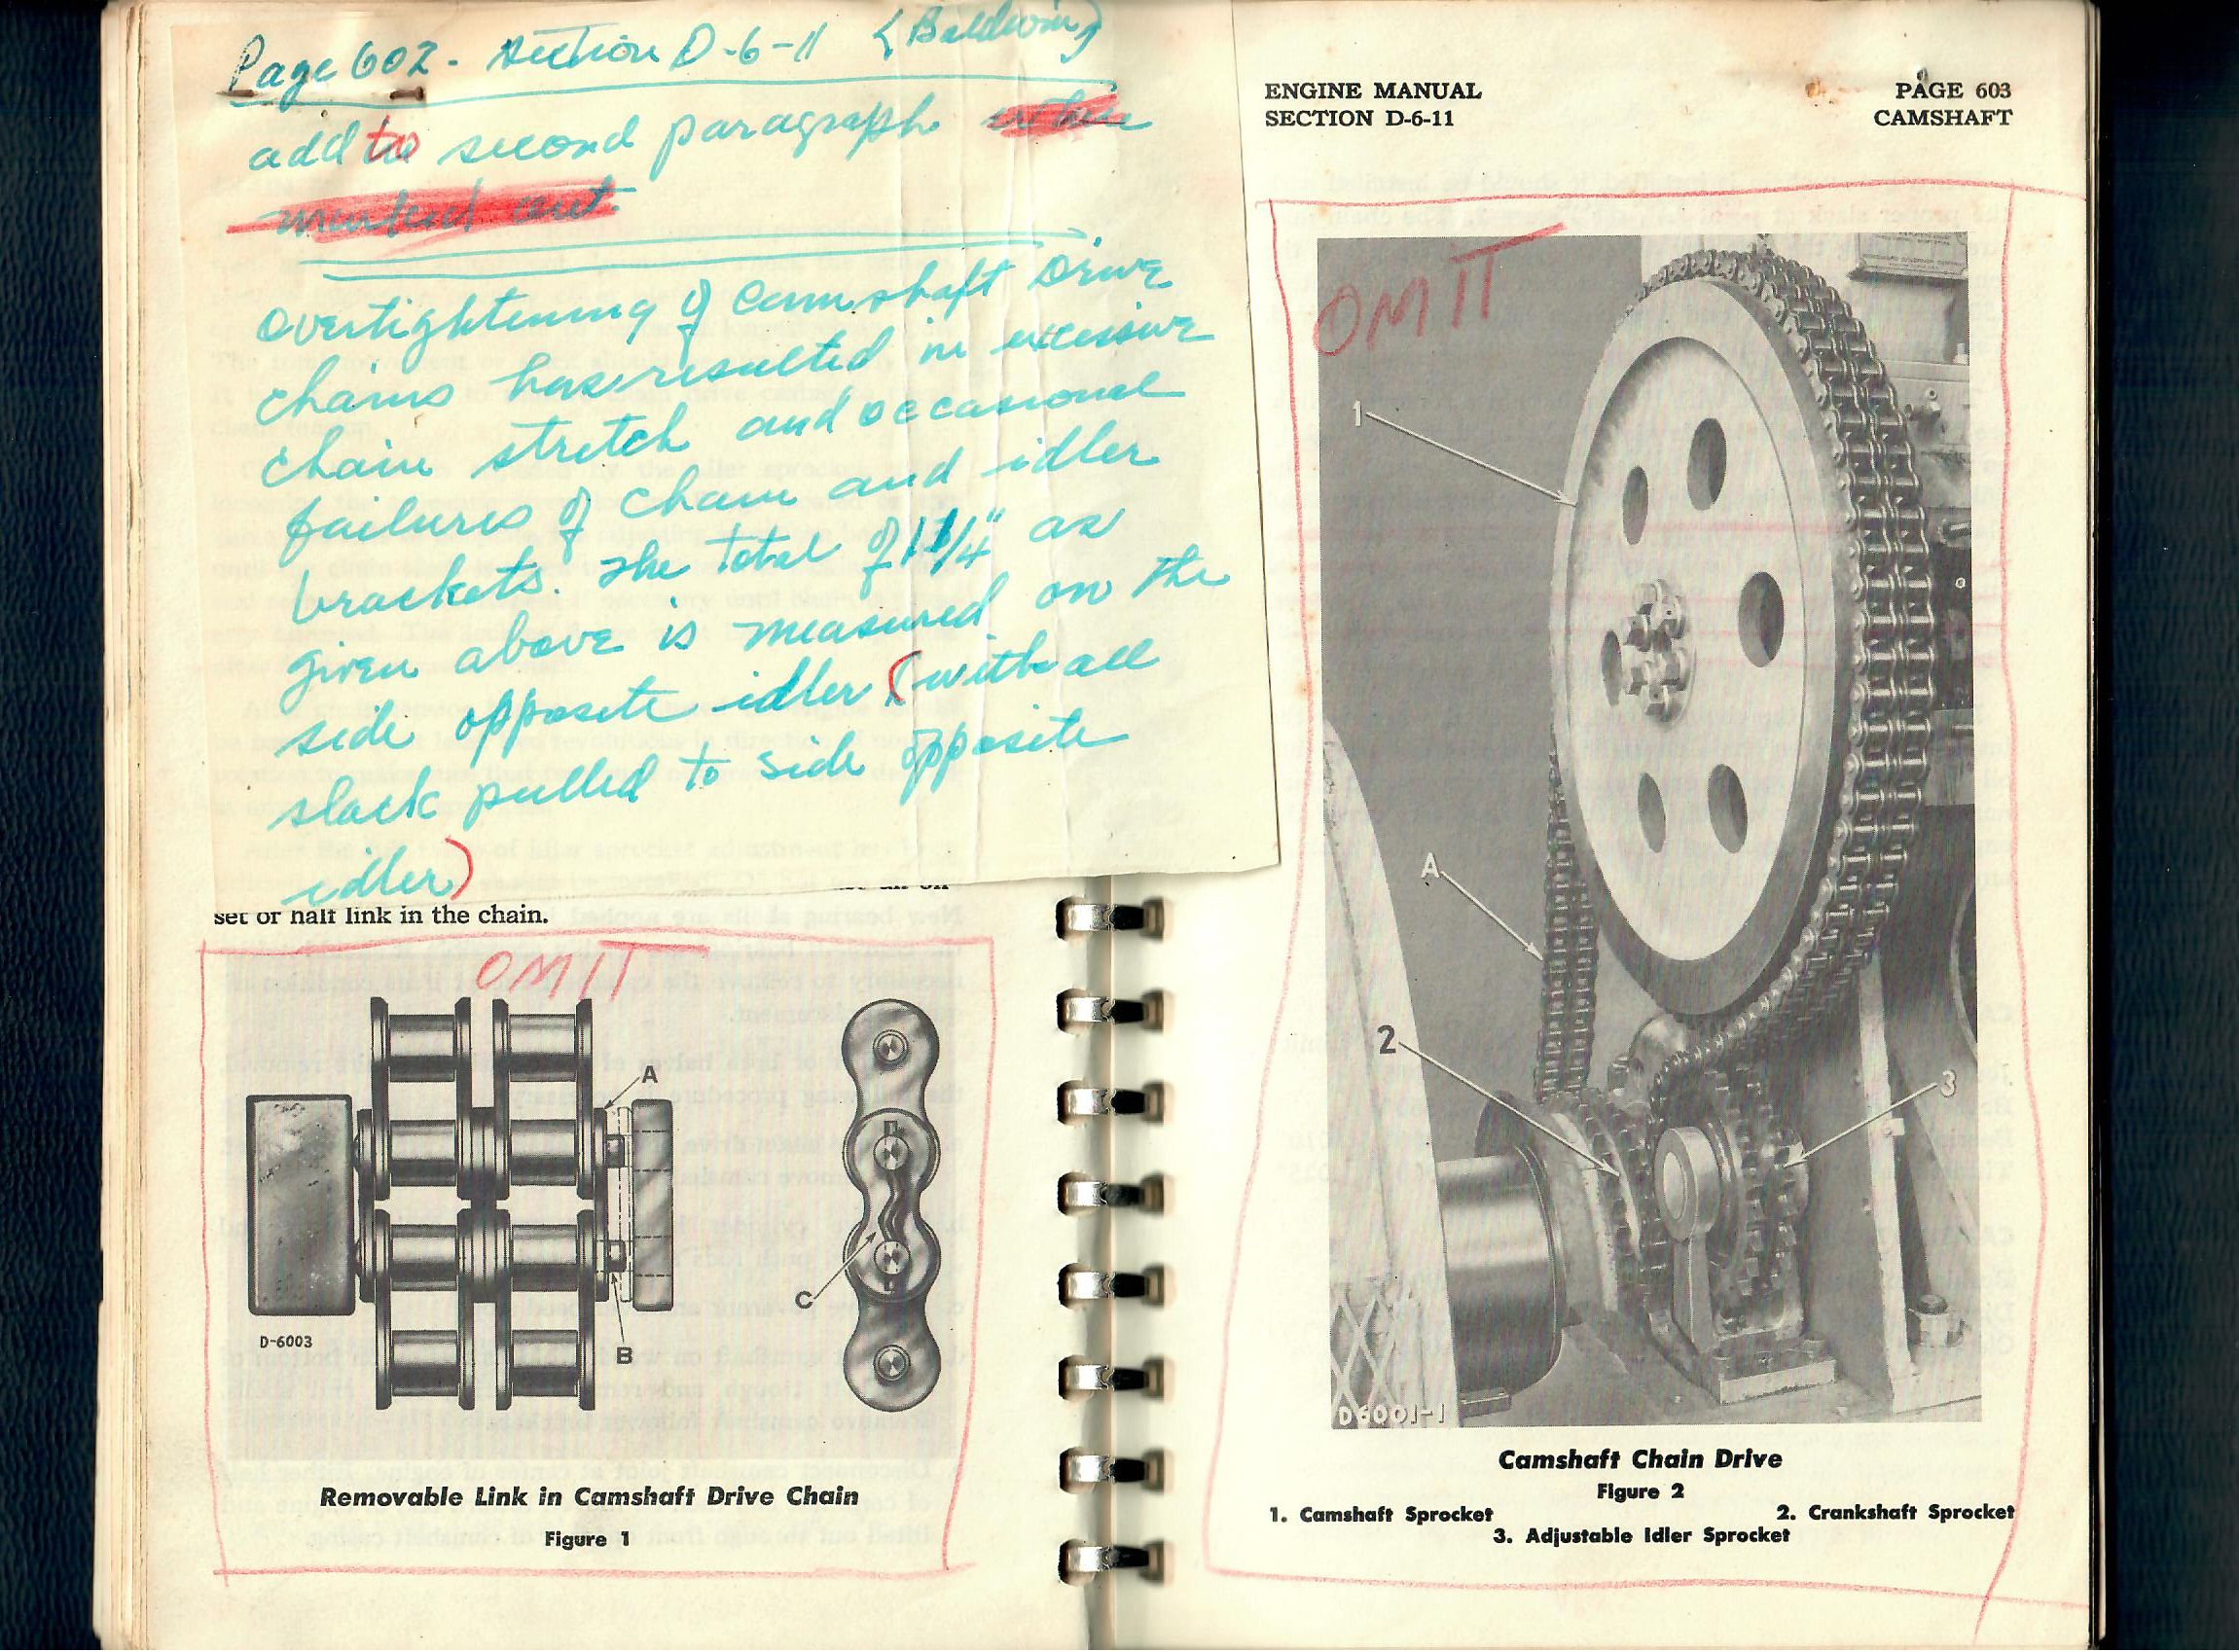 Page 602 - section D-6-11 (Baldwin)
add to second paragraph
marked out
overtightening of camshaft Drive
chains has resulted in excessive
chain stretch and occasional
failures of chain and idler
brackets. The total of 1 1/4" as
given above is measured on the
side opposite idler (with all
slack pulled to side opposite
idler)
set or half link in the chain.
OMIT
A
C
D-6003
B
Removable Link in Camshaft Drive Chain
Figure 1
ENGINE MANUAL PAGE 603
SECTION D-6-11 CAMSHAFT
OMIT
1
A
2
3
D6001-1
Camshaft Chain Drive
Figure 2
1. Camshaft Sprocket 2. Crankshaft Sprocket
3. Adjustable Idler Sprocket